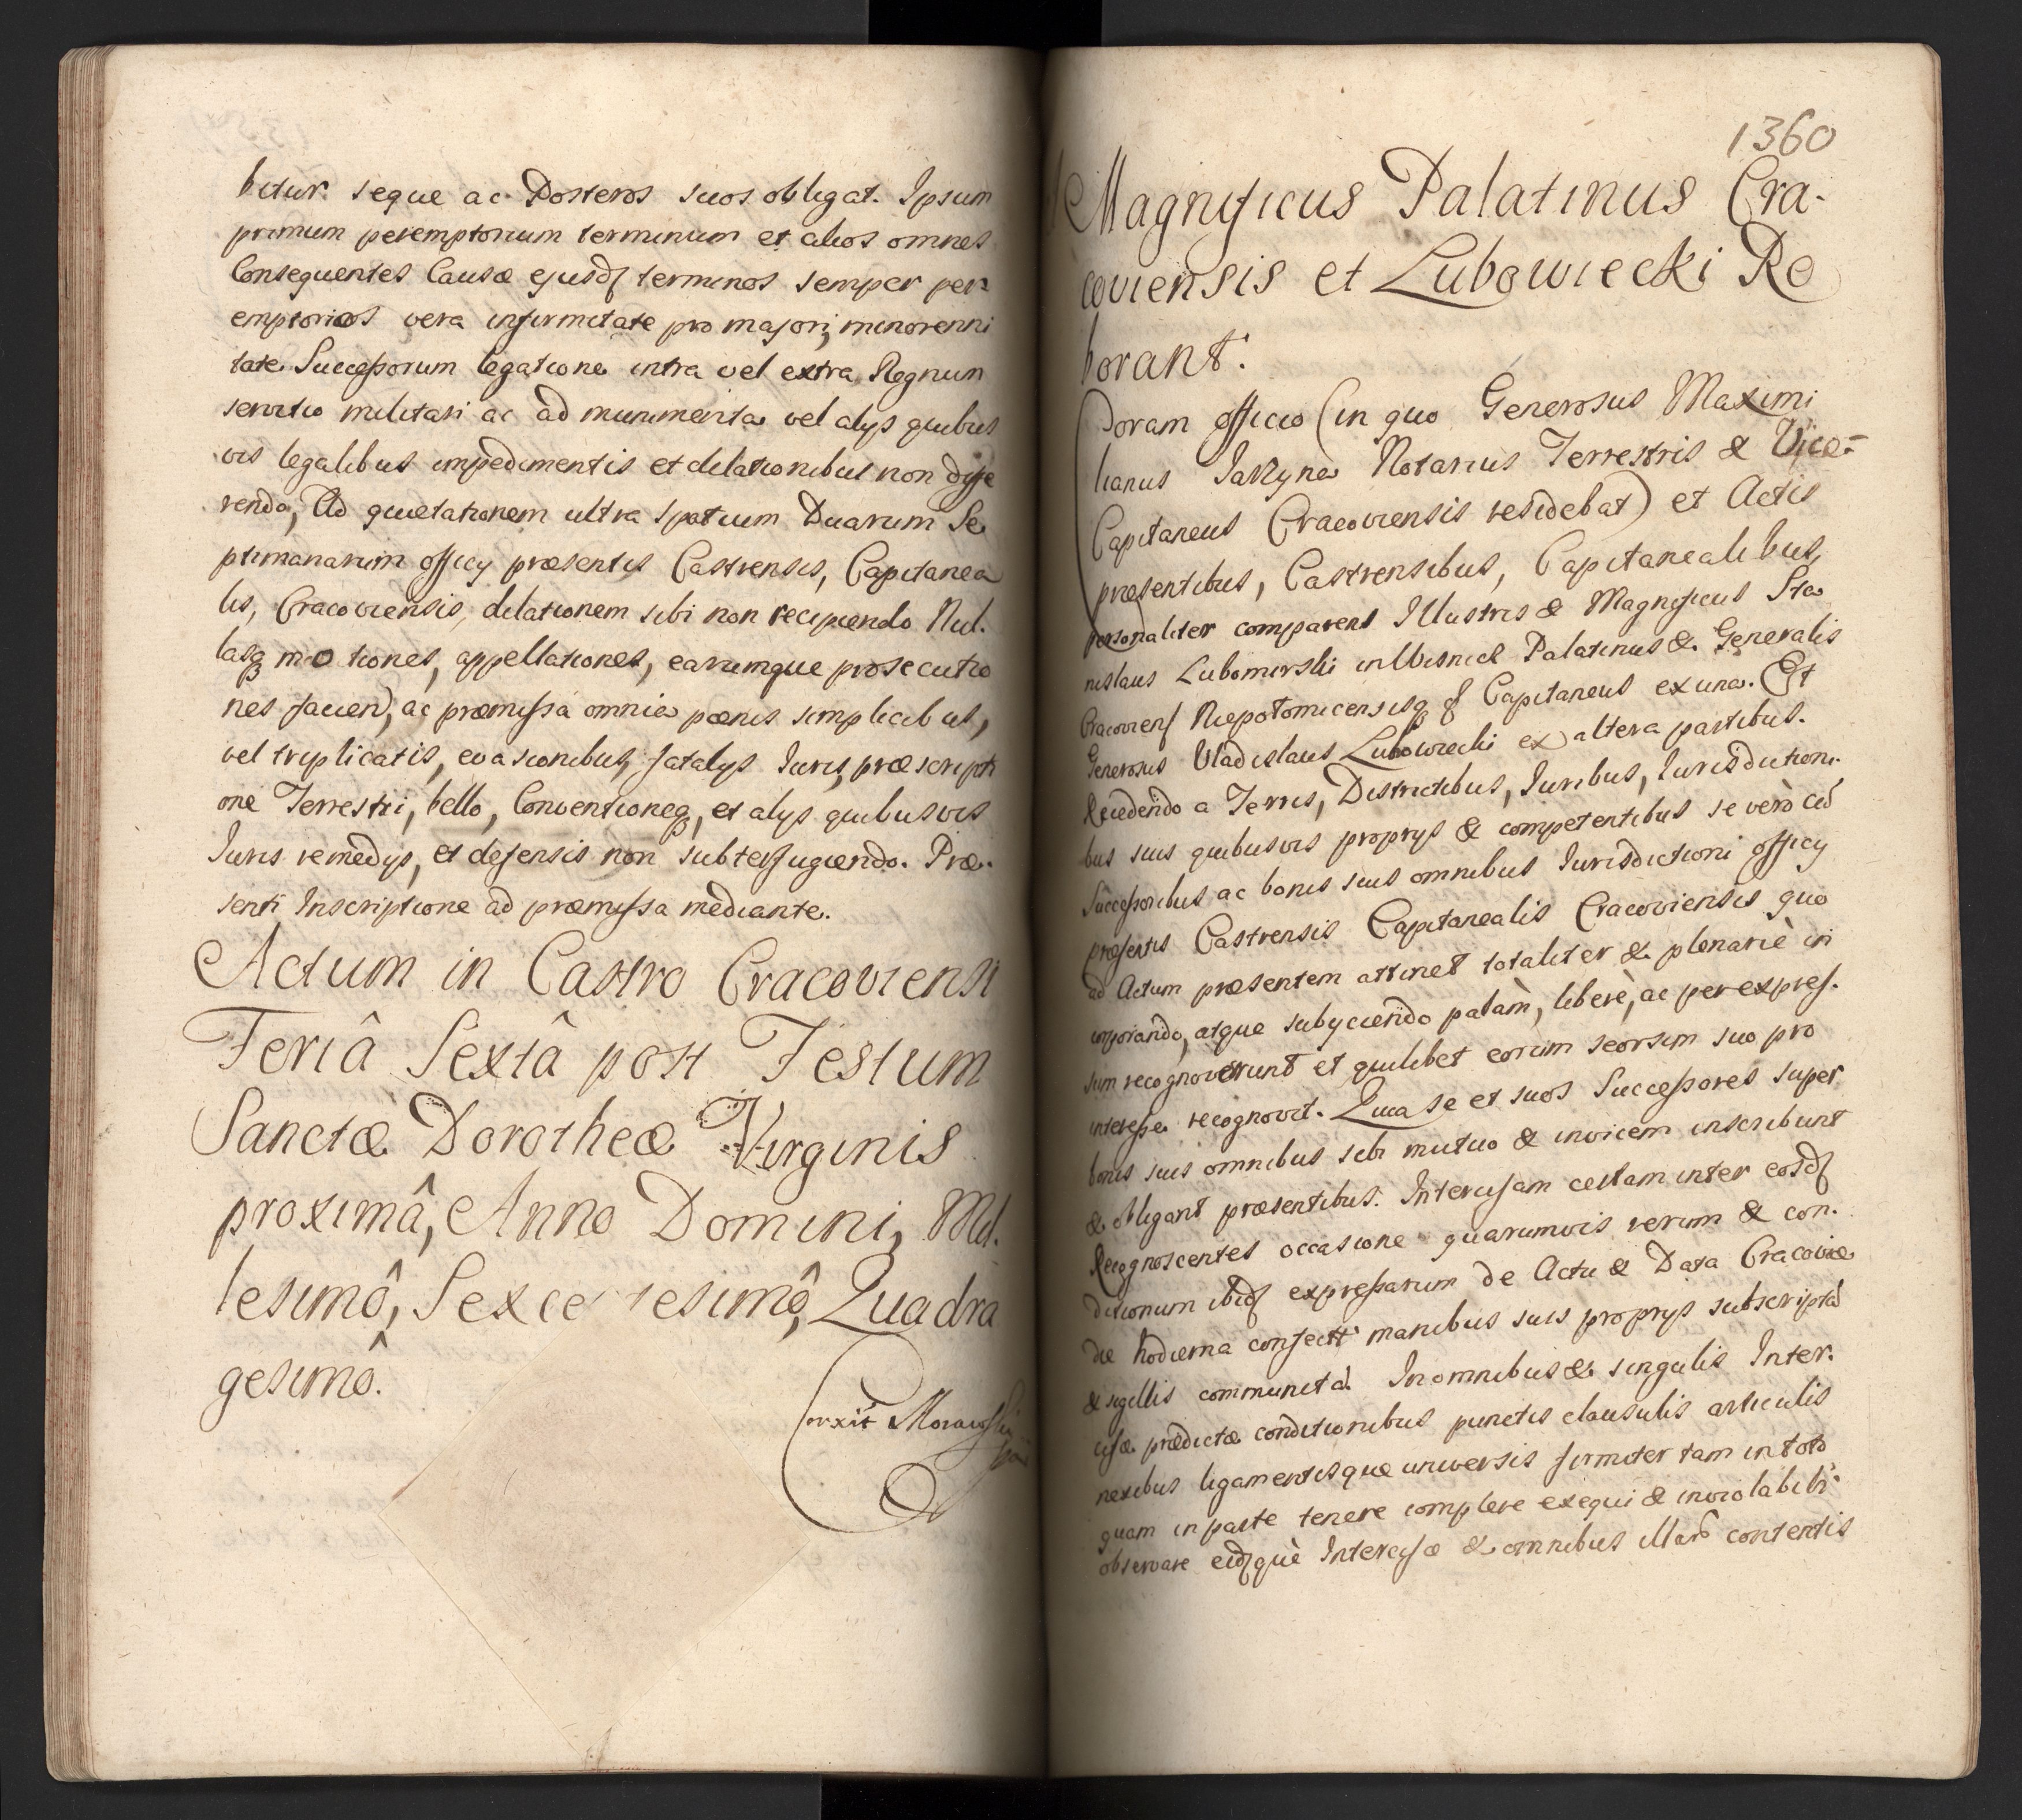 bitur seque ac Posteros suos obligat. Ipsum
primum peremptorium terminum et alios omnes
Consequentes Causæ ejusdꝭ terminos semper per=
emptorios vera infirmitate pro majori, minorenni
tate Successorum legatione intra vel extra Regnum
servitio militari ac ad munimenta vel alys quibus
vis legalibus impedimentis et dilationibus non diffe
rendo, Ad quietationem ultra spatium Duarum Se
ptimanarum officy præsentis Castrensis, Capitanea
lis, Cracoviensis, dilationem sibi non recipiendo Nul.
lasq motiones, appellationes, earumque prosecutio
nes faciend, ac præmissa omnia pœnis simplicibus,
vel triplicatis, evasionibus, fatalys Iuris, præscripti
one Terrestri, bello, Conventioneq, et alys quibusvis
Iuris remedys, et defensis non subterfugiendo. Præ.
senti Inscriptione ad præmissa mediante.
Actum in Castro Cracoviensi
Feriâ Sextâ post Festum
Sanctæ Dorotheæ Virginis
proximâ, Anno Domini, Mil.
lesimô, Sexce tesimô, Quadra
gesimô.
Corxit Morawski
1360
Magnificus Palatinus Cra-
coviensis et Lubowiecki Ro
borant.
Coram officio (in quo Generosus Maximi
lianus Jaklyna Notarius Terrestris & Vice-
Capitaneus Cracoviensis residebat) et Actis
præsentibus, Castrensibus, Capitanealibus,
personaliter comparens Illustris & Magnificus Sta
nislaus Lubomirski in Wisnicz Palatinus & Generalis
Cracovien Niepołomicensisq Capitaneus ex una. Et
Generosus Vladislaus Lubowiecki ex altera partibus.
Recedendo a Terris, Districtibus, Iuribus, Iurisdictioni.
bus suis quibusvis proprys & competentibus se verò cũ
Successoribus ac bonis suis omnibus Iurisdictioni officy
præsentis Castrensis Capitanealis Cracoviensis quo
ad Actum præsentem attinet totaliter & plenariè in
corporando, atque subyciendo palàm, liberè, ac per expres.
sum recognoverunt et quilibet eorum seorsim suo pro
interesse recognovit. Quia se et suos Successores super
bonis suis omnibus sibi mutuo & invicem inscribunt
& obligant præsentibus. Intercisam certam inter eosdꝭ
Recognoscentes occasione quarumvis rerum & con.
ditionum ibidꝭ expressarum de Actu & Data Cracoviæ
die hodierna confectã manibus suis proprys subscriptã
& sigillis communitã In omnibus & singulis Inter.
cisæ prædictæ conditionibus punctis clausulis articulis
nexibus ligamentisque universis firmiter tam in toto
quam in parte tenere complere exequi & inviolabili:
observare eidꝭquè Intercisæ & omnibus illius contentis